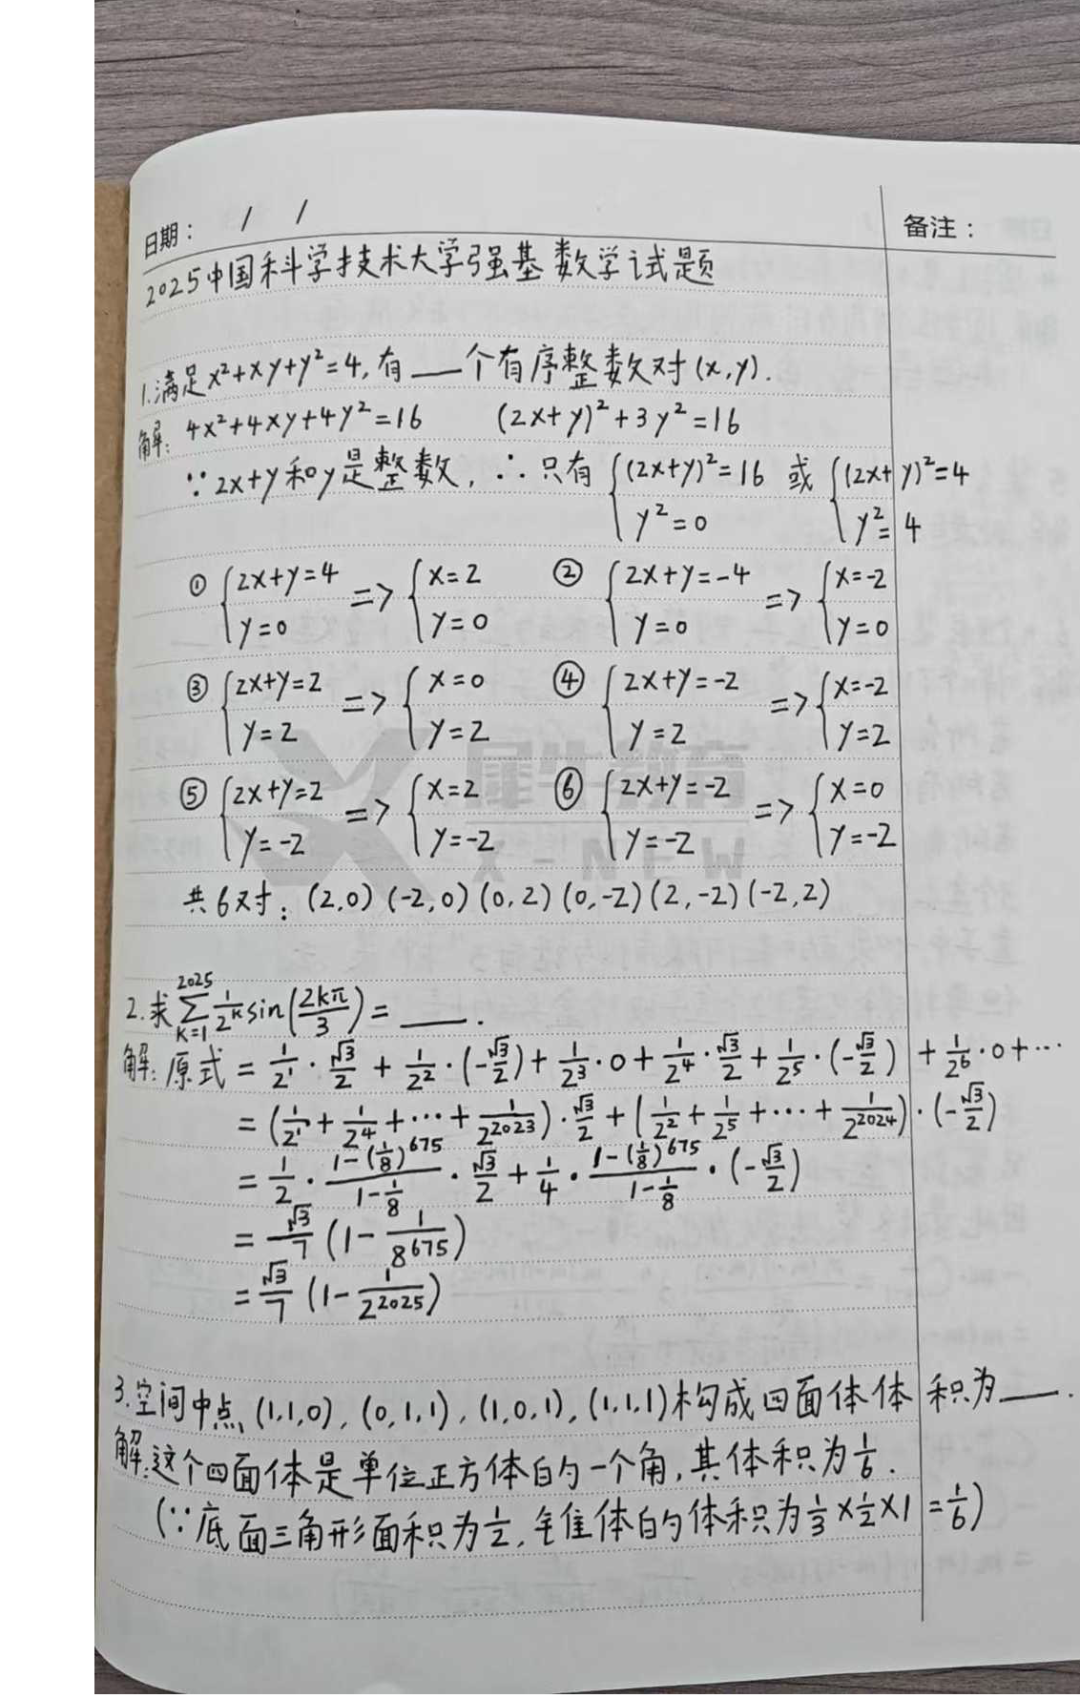 日期： / /
备注：
2025中国科学技术大学强基数学试题
1.满足x²+xy+y²=4,有___个有序整数对(x,y).
解: 4x²+4xy+4y²=16 (2x+y)²+3y²=16
∵2x+y和y是整数,∴只有{(2x+y)²=16 或 {(2x+y)²=4
y²=0 y²=4
① {2x+y=4 => {x=2 ② {2x+y=-4 => {x=-2
y=0 y=0 y=0 y=0
③ {2x+y=2 => {x=0 ④ {2x+y=-2 => {x=-2
y=2 y=2 y=2 y=2
⑤ {2x+y=2 => {x=2 ⑥ {2x+y=-2 => {x=0
y=-2 y=-2 y=-2 y=-2
犀牛教育
X-NEW
共6对: (2,0) (-2,0) (0,2) (0,-2) (2,-2) (-2,2)
2.求∑_{k=1}^{2025} 1/2^k sin(2kπ/3)=___.
解:原式=1/2¹·√3/2+1/2²·(-√3/2)+1/2³·0+1/2⁴·√3/2+1/2⁵·(-√3/2)+1/2⁶·0+···
=(1/2¹+1/2⁴+···+1/2^2023)·√3/2+(1/2²+1/2⁵+···+1/2^2024)·(-√3/2)
=1/2·(1-(1/8)^675)/(1-1/8)·√3/2+1/4·(1-(1/8)^675)/(1-1/8)·(-√3/2)
=√3/7(1-1/8^675)
=√3/7(1-1/2^2025)
3.空间中点(1,1,0),(0,1,1),(1,0,1),(1,1,1)构成四面体体积为___.
解:这个四面体是单位正方体的一个角,其体积为1/6.
(∵底面三角形面积为1/2,锥体的体积为1/3×1/2×1=1/6)